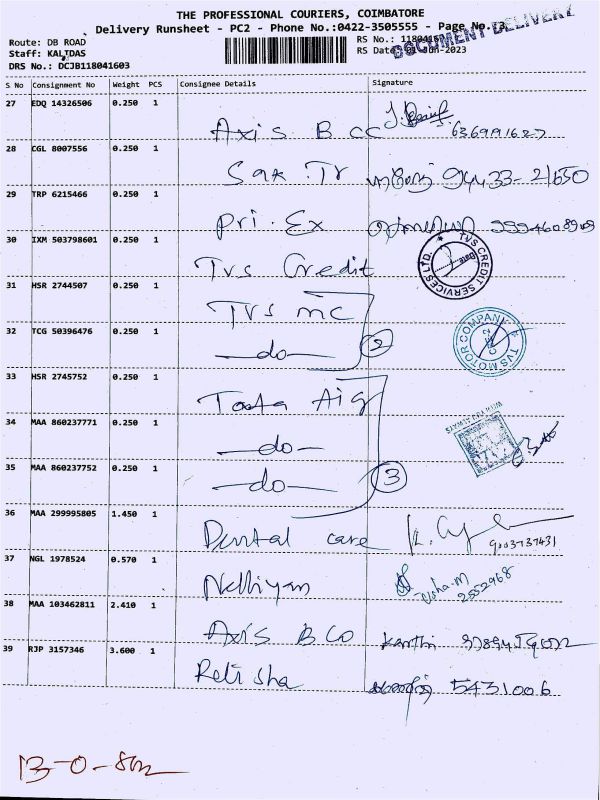 THE PROFESSIONAL COURIERS, COIMBATORE
Delivery Runsheet - PC2 - Phone No.:0422-3505555 - Page No. 3
DOCUMENT DELIVERY
Route: DB ROAD
RS No.: 1180416
Staff: KALIDAS
RS Date: Jun-2023
DRS No.: DCJB118041603
S No Consignment No Weight PCS Consignee Details Signature
27 EDQ 14326506 0.250 1
Axis B CC
28 CGL 8007556 0.250 1
Sak. Tr 94433-21650
29 TRP 6215466 0.250 1
Pri. Ex
30 IXM 503798601 0.250 1
Tvs Credit
TVS CREDIT SERVICES LTD.
31 HSR 2744507 0.250 1
TVS mc
32 TCG 50396476 0.250 1
do 2
TVS MOTOR COMPANY
33 HSR 2745752 0.250 1
Tata Aig
34 MAA 860237771 0.250 1
do
35 MAA 860237752 0.250 1
do 3
36 MAA 299995805 1.450 1
Dental care 9003737431
37 NGL 1978524 0.570 1
Nelliyan Usha.M
2552968
38 MAA 103462811 2.410 1
Axis B CO Karthi
39 RJP 3157346 3.600 1
Relisha 5431006